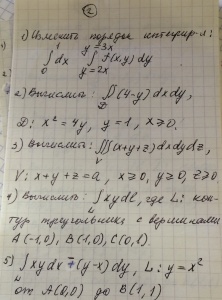 2
1) Изменить порядок интегрир-я:
∫₀¹ dx ∫_{y=2x}^{y=3x} f(x,y) dy
2) Вычислить: ∬_D (4-y) dx dy,
D: x² = 4y, y = 1, x ≥ 0.
3) Вычислить: ∭_V (x+y+z) dx dy dz,
V: x+y+z=a, x ≥ 0, y ≥ 0, z ≥ 0
4) Вычислить: ∫_L xy dl, где L: кон-
тур треугольника с вершинами
A(-1,0), B(1,0), C(0,1).
5) ∫_L xy dx + (y-x) dy, L: y = x²
от A(0,0) до B(1,1)